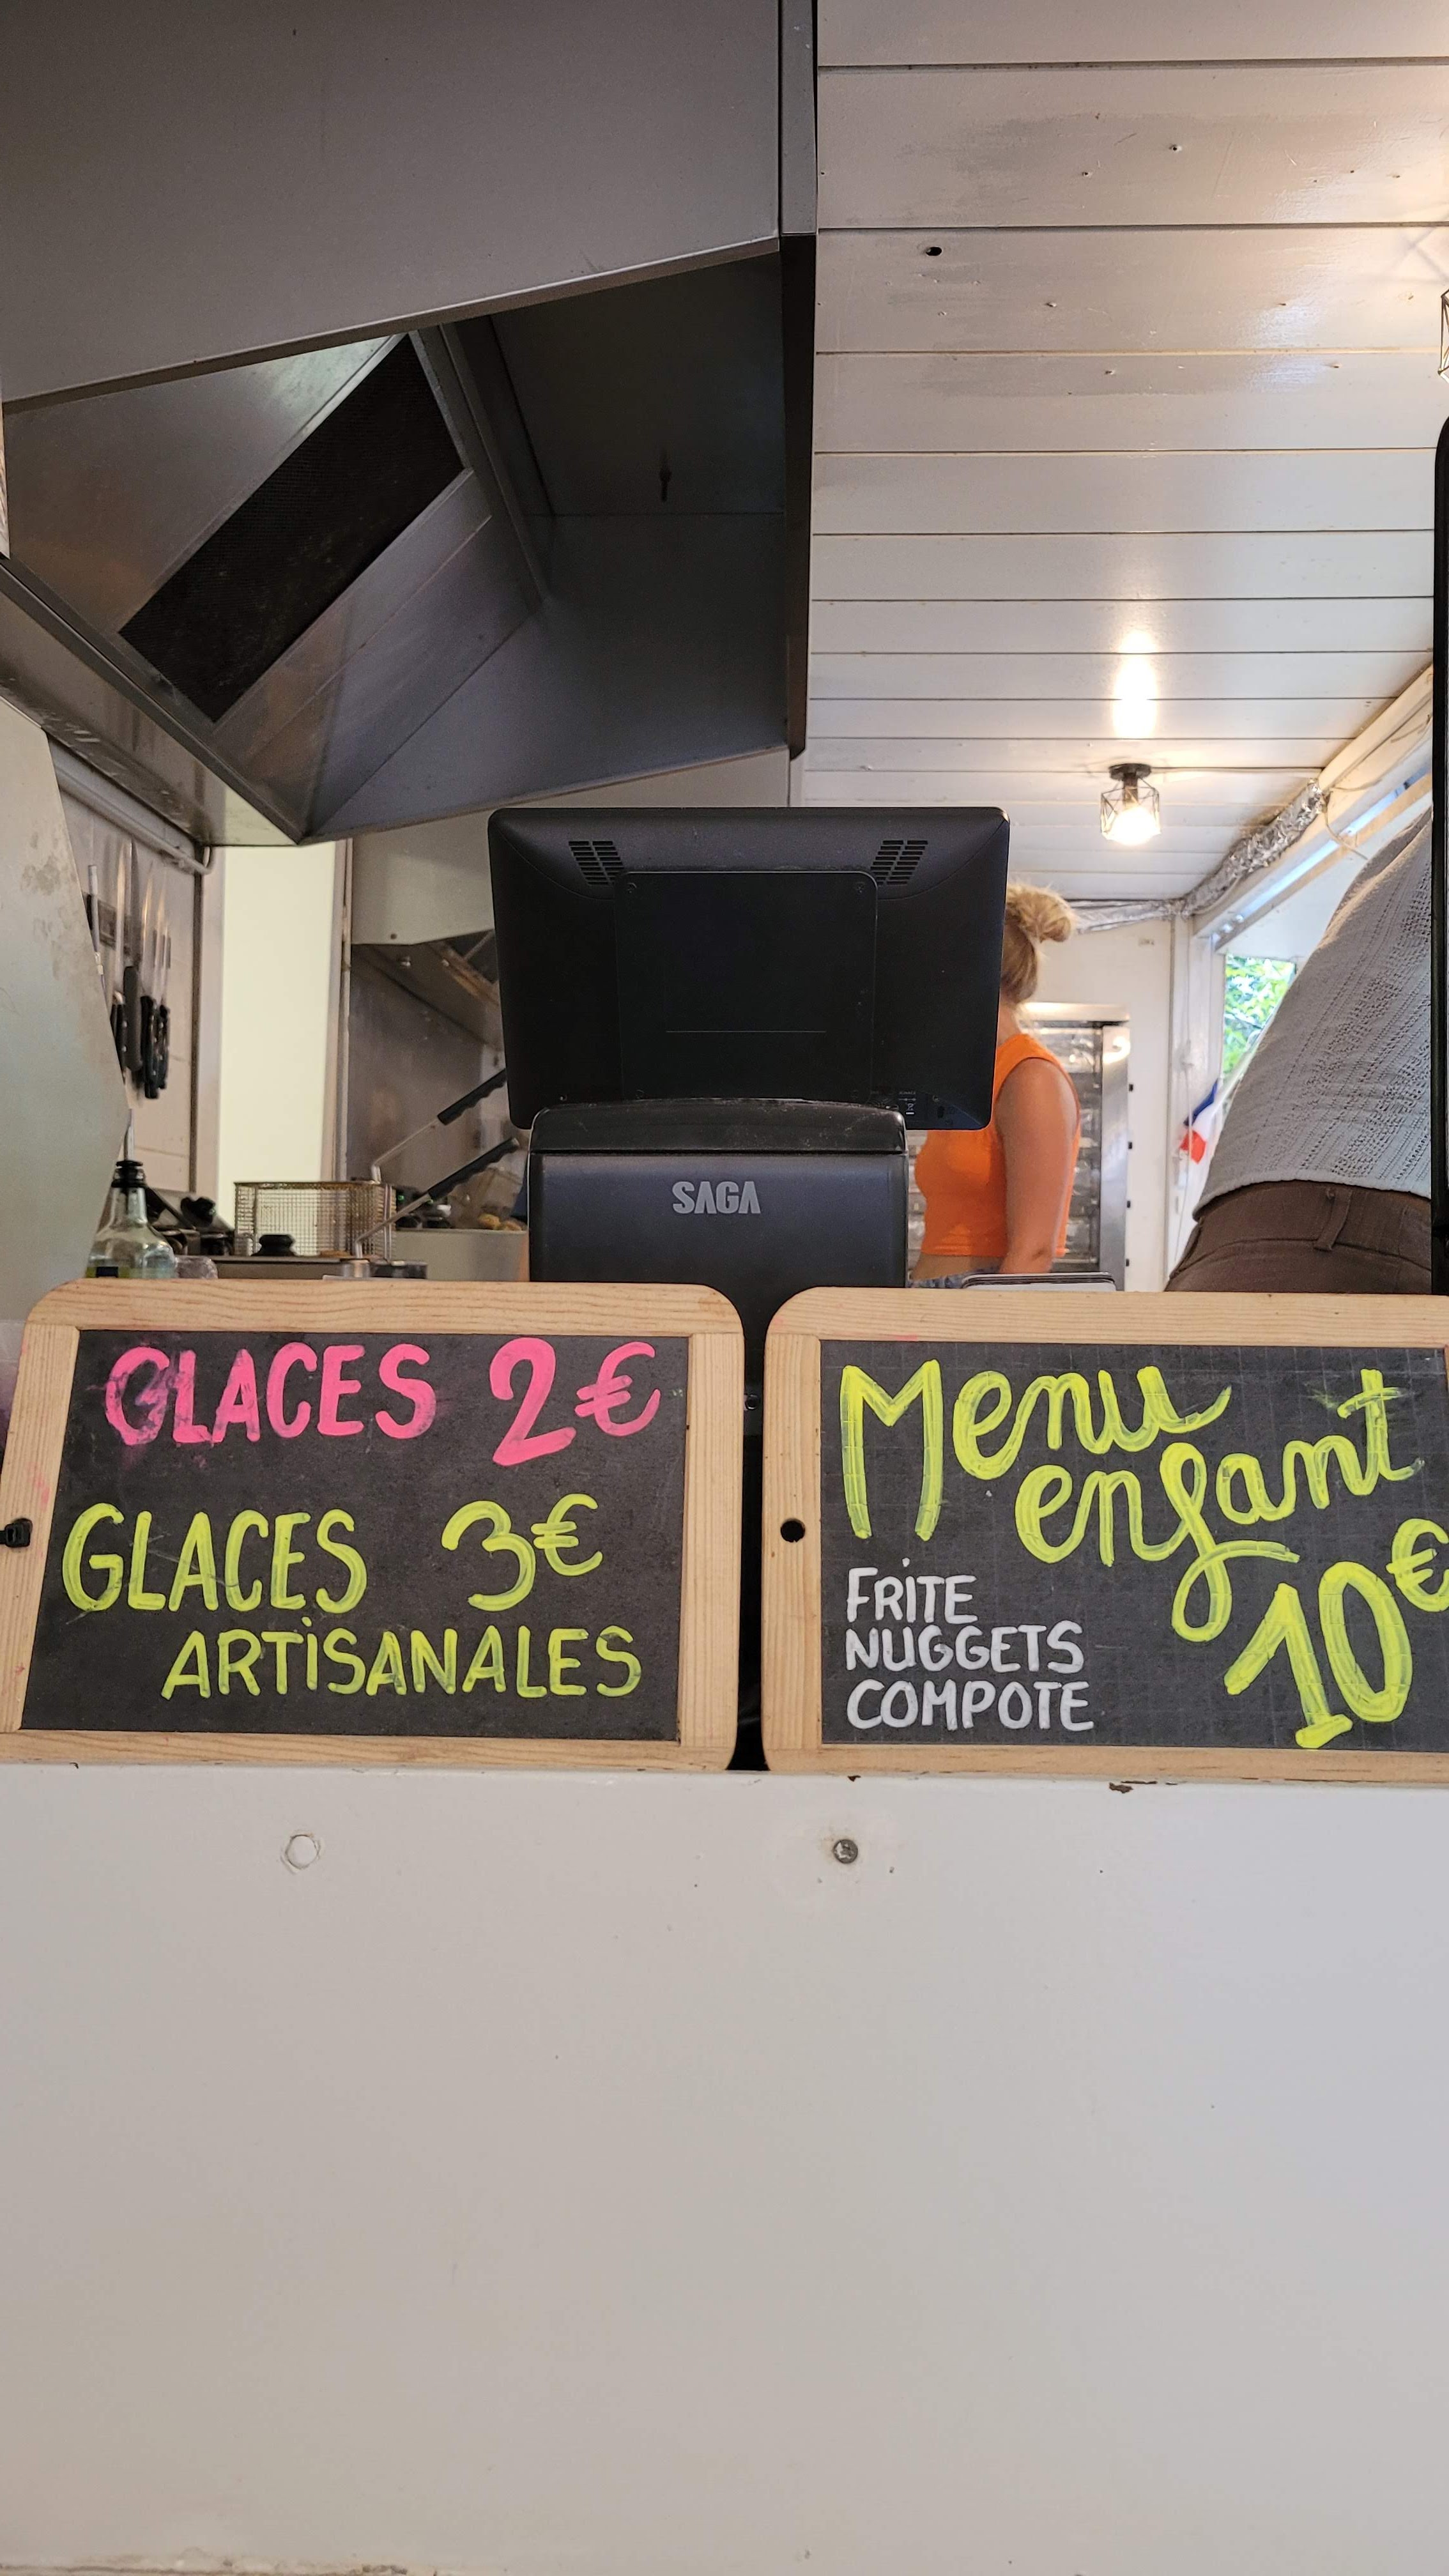 SAGA
GLACES 2€
GLACES 3€
ARTISANALES
Menu
enfant
10€
FRITE
NUGGETS
COMPOTE